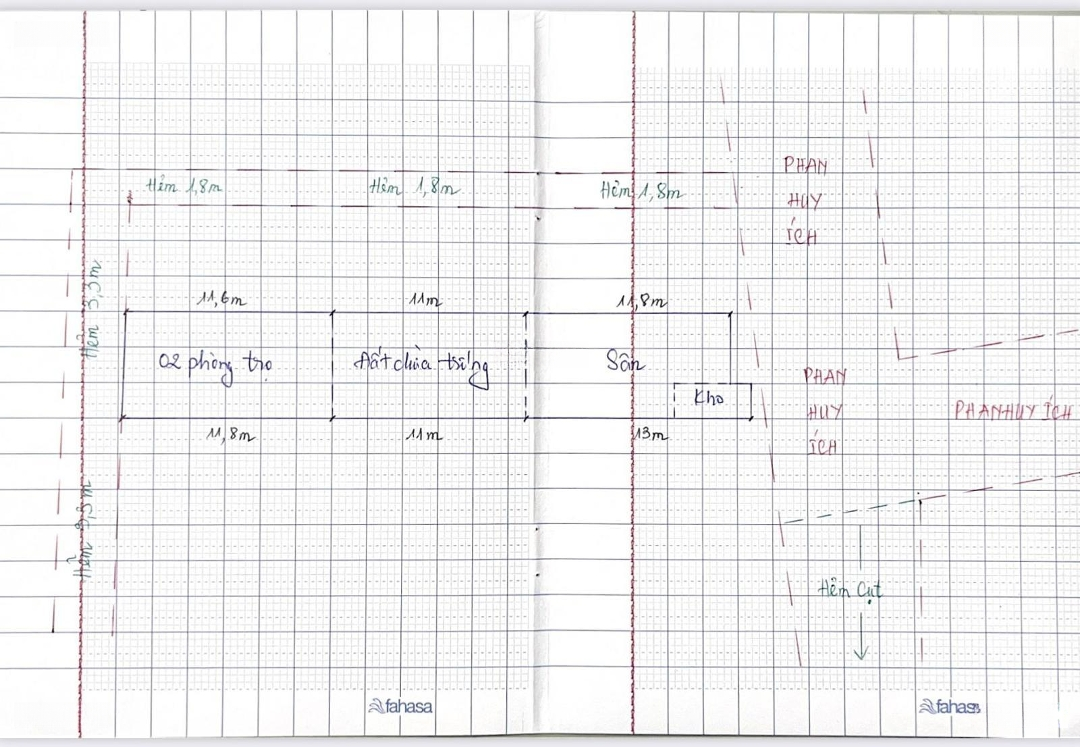 Hẻm 1,8m
Hẻm 1,8m
Hẻm 1,8m
PHAN
HUY
ÍCH
Hẻm 3,3m
11,6m
11m
11,8m
02 phòng trọ
Đất chừa trống
Sân
Kho
PHAN
HUY
ÍCH
PHAN HUY ÍCH
11,8m
11m
13m
Hẻm 3,3m
Hẻm Cụt
fahasa
fahasa